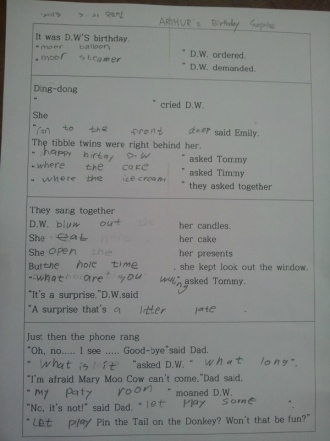 ARTHUR's Birthday Surprise
It was D.W'S birthday.
"moer baloon " D.W. ordered.
"motr steamer " D.W. demanded.
Ding-dong
" " cried D.W.
She
"ron to the front door said Emily.
The tibble twins were right behind her.
" happy birtay D.W " asked Tommy
"where the cake " asked Timmy
" where the icecream " they asked together
They sang together
D.W. blow out her candles.
She eat her cake
She open the her presents
But the hole time , she kept look out the window.
"what are you waiting "asked Tommy.
"It's a surprise."D.W.said
"A surprise that's a litter late
Just then the phone rang
"Oh, no..... I see ..... Good-bye"said Dad.
" what is it "asked D.W." what long".
"I'm afraid Mary Moo Cow can't come,"Dad said.
"my paty roon " moaned D.W.
"No, it's not!" said Dad. "let play some
"Let play Pin the Tail on the Donkey? Won't that be fun?"